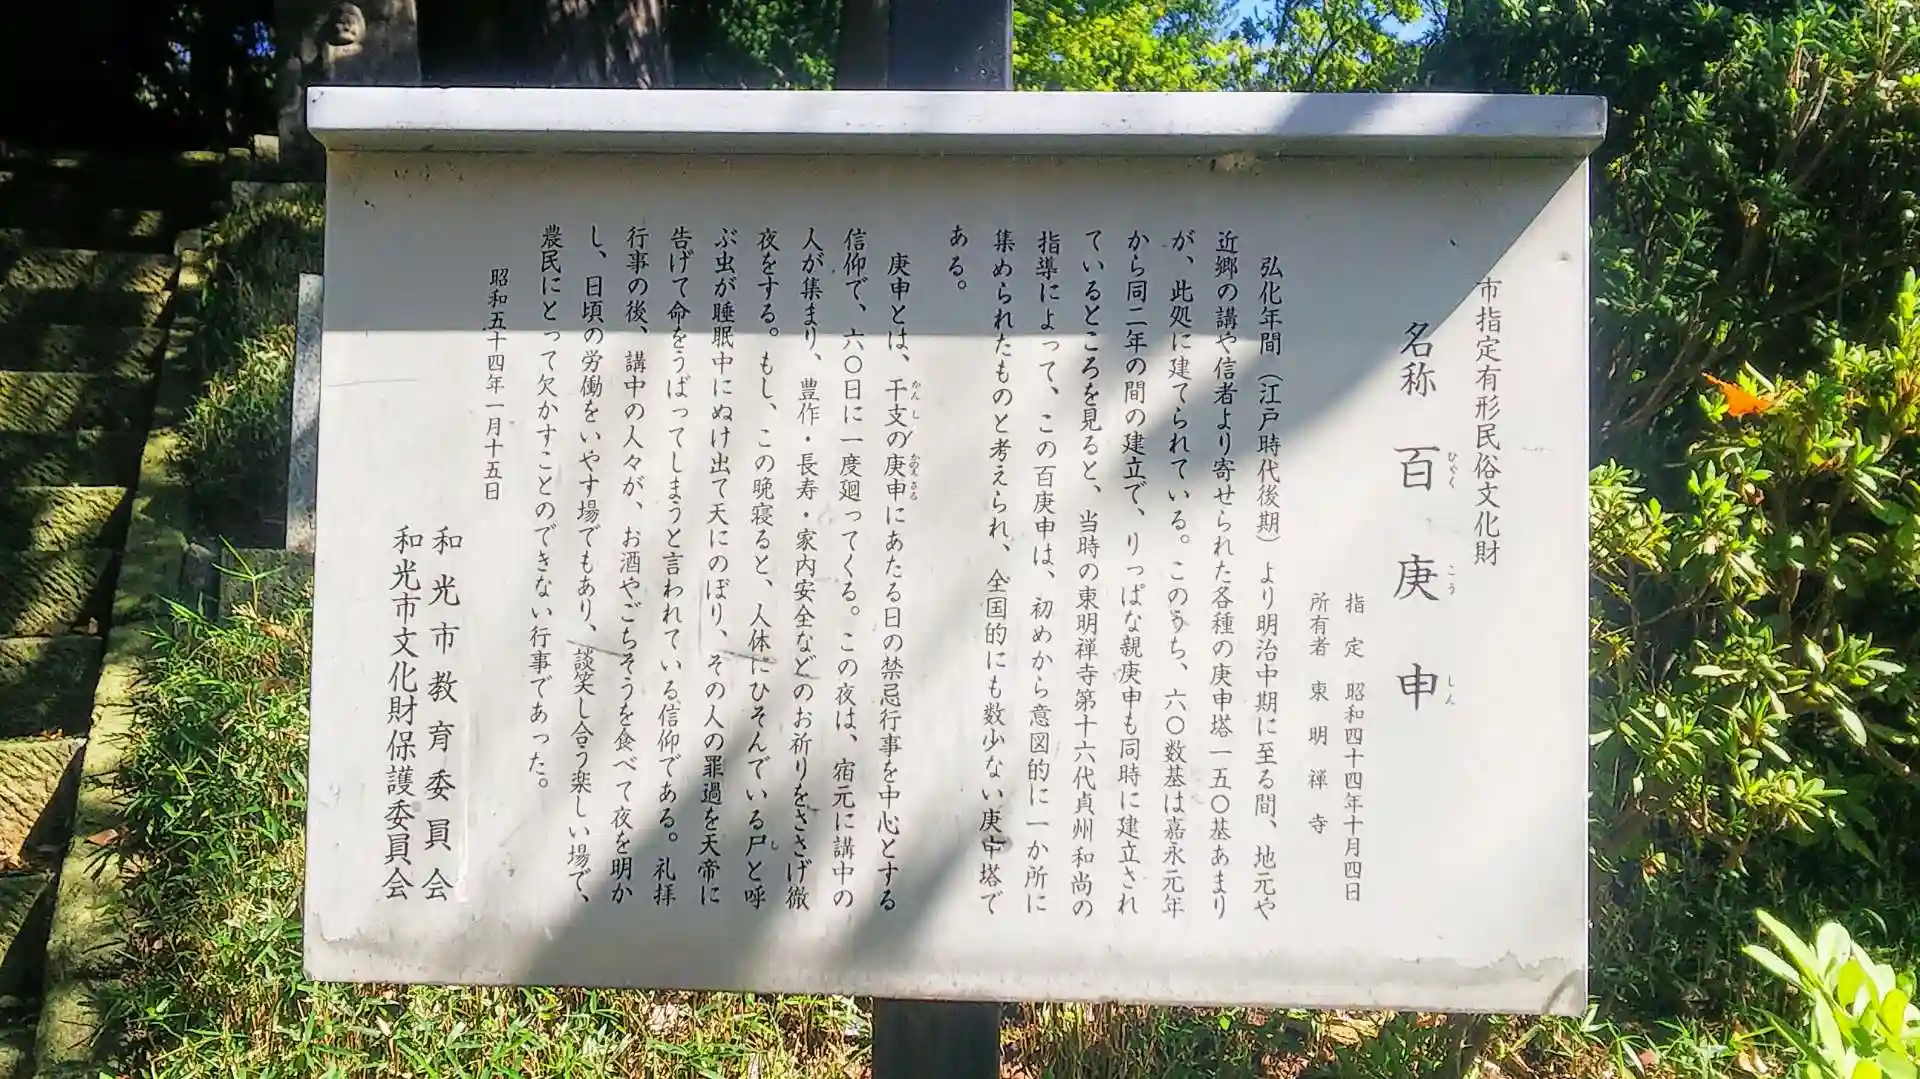 市指定有形民俗文化財
名称 百庚申
ひゃく こう しん
指定 昭和四十四年十月四日
所有者 東明禅寺
弘化年間（江戸時代後期）より明治中期に至る間、地元や
近郷の講や信者より寄せられた各種の庚申塔一五〇基あまり
が、此処に建てられている。このうち、六〇数基は嘉永元年
から同二年の間の建立で、りっぱな親庚申も同時に建立され
ているところを見ると、当時の東明禅寺第十六代貞州和尚の
指導によって、この百庚申は、初めから意図的に一か所に
集められたものと考えられ、全国的にも数少ない庚申塔で
ある。
庚申とは、干支の庚申にあたる日の禁忌行事を中心とする
かんし かのえさる
信仰で、六〇日に一度廻ってくる。この夜は、宿元に講中の
人が集まり、豊作・長寿・家内安全などのお祈りをささげ徹
夜をする。もし、この晩寝ると、人体にひそんでいる尸と呼
し
ぶ虫が睡眠中にぬけ出て天にのぼり、その人の罪過を天帝に
告げて命をうばってしまうと言われている信仰である。礼拝
行事の後、講中の人々が、お酒やごちそうを食べて夜を明か
し、日頃の労働をいやす場でもあり、談笑し合う楽しい場で、
農民にとって欠かすことのできない行事であった。
昭和五十四年一月十五日
和光市教育委員会
和光市文化財保護委員会